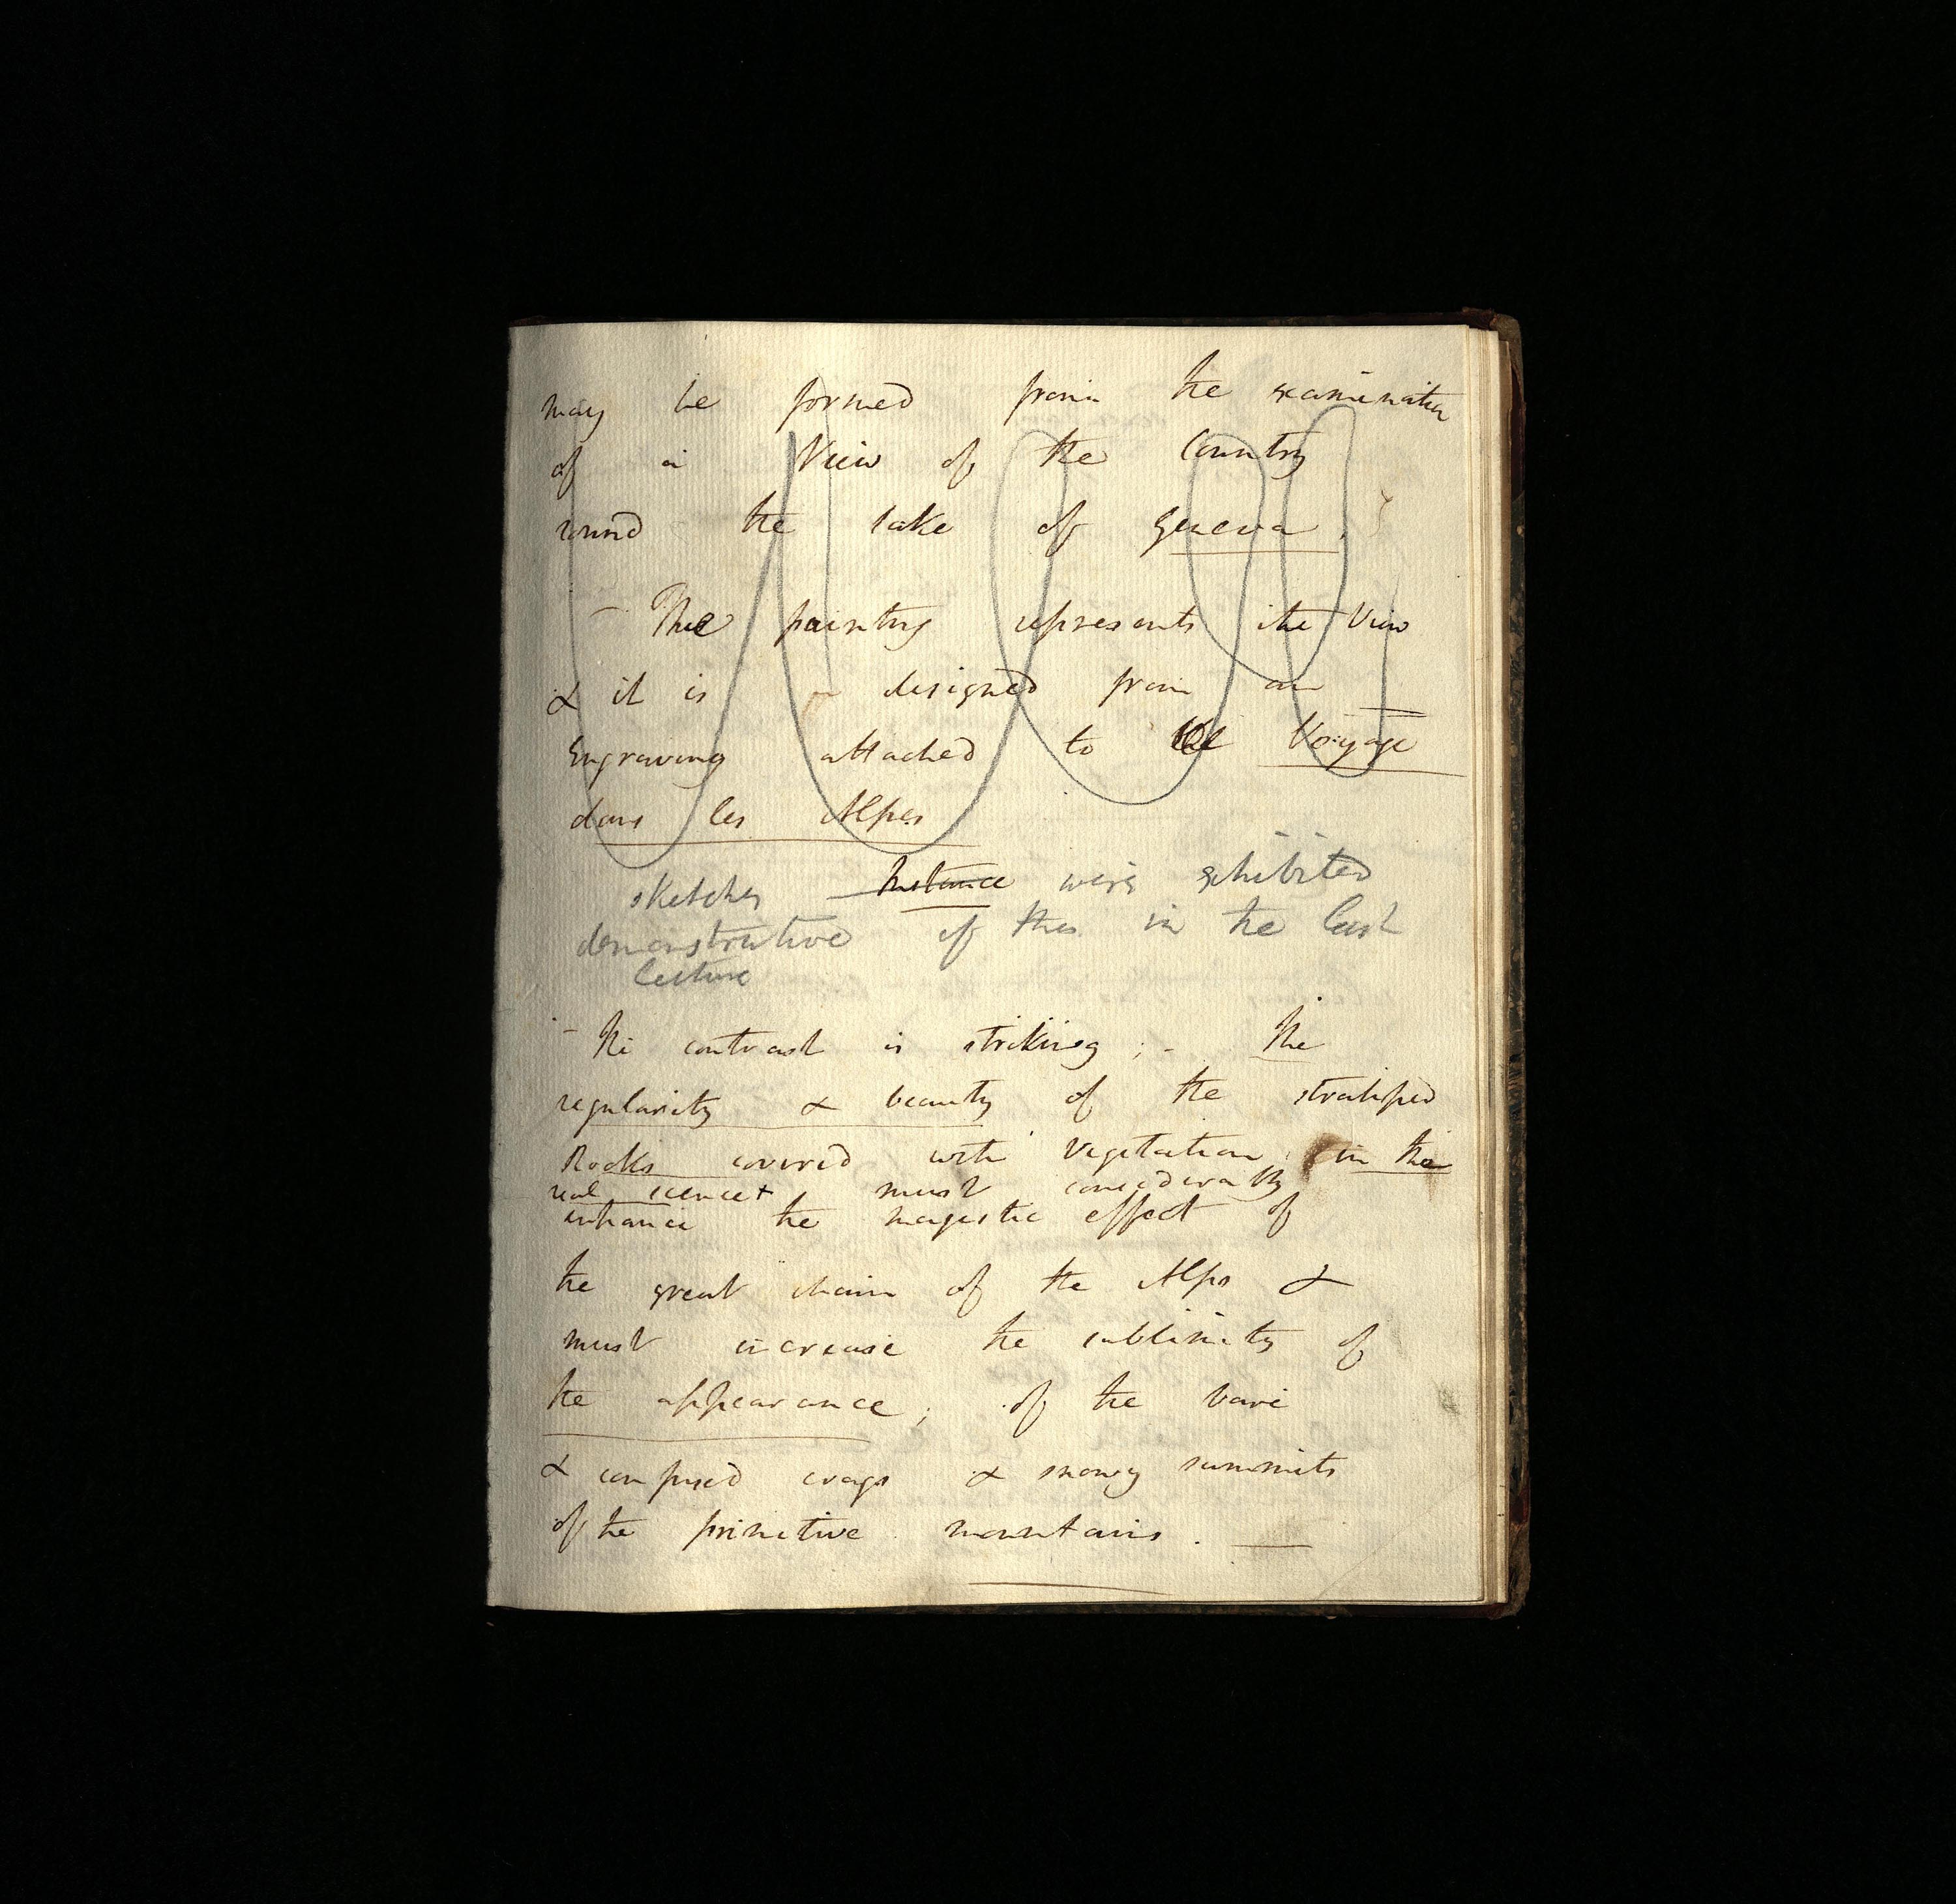 may be formed from the examination
of a View of the Country
round the lake of Geneva.
- The painting represents the View
& it is designed from an
Engraving attached to the Voyage
dans les Alpes
sketches Instance were exhibited
demonstrative of this in the last
lecture
- The contrast is striking; - The
regularity & beauty of the stratified
Rocks covered with vegetation in the
real scene + must considerably
enhance the magestic effect of
the great chain of the Alps &
must increase the sublimity of
the appearance; of the bare
& confused crags & snowy summits
of the primitive mountains. —